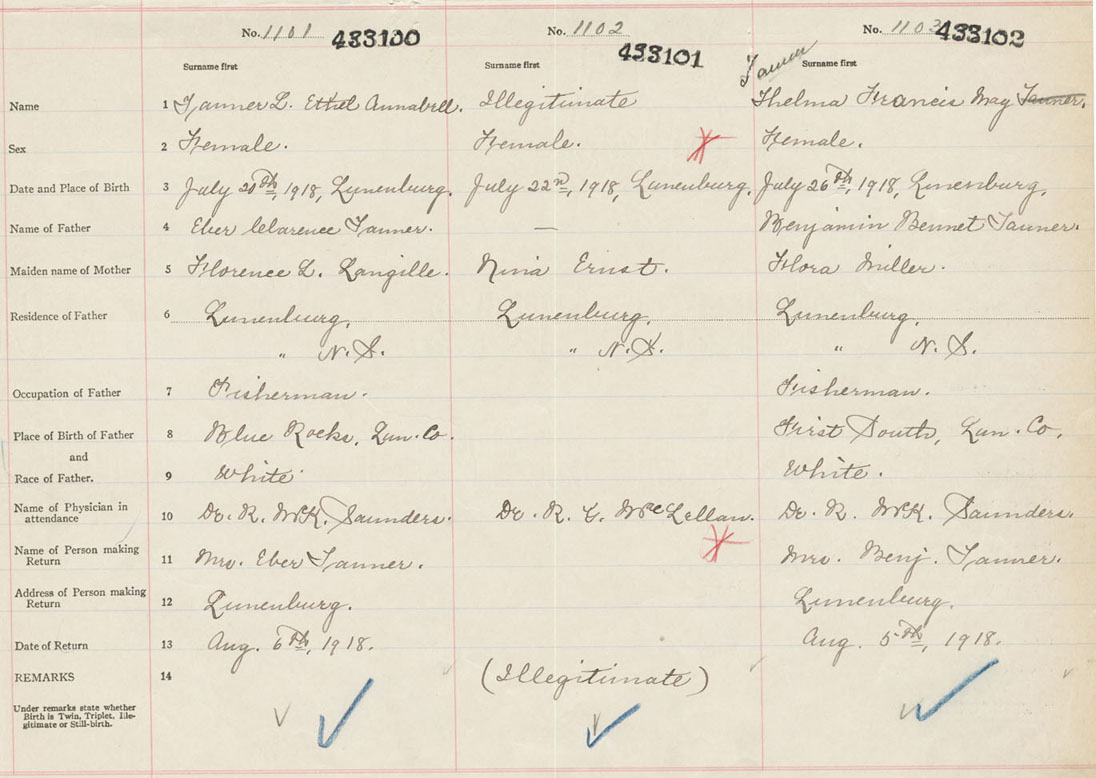 No. 1101 433100 No. 1102 433101 No. 1103 433102
Surname first Surname first Tanner Surname first
Name 1 Tanner L. Ethel Annabell. Illegitimate Thelma Francis May Tanner.
Sex 2 Female. Female. Female.
Date and Place of Birth 3 July 20th, 1918, Lunenburg. July 22nd, 1918, Lunenburg. July 26th, 1918, Lunenburg.
Name of Father 4 Eber Clarence Tanner. — Benjamin Bennet Tanner.
Maiden name of Mother 5 Florence L. Langille. Nina Ernst. Flora Miller.
Residence of Father 6 Lunenburg, Lunenburg, Lunenburg,
" N.S. " N.S. " N.S.
Occupation of Father 7 Fisherman. Fisherman.
Place of Birth of Father 8 Blue Rocks, Lun. Co. First South, Lun. Co.
and
Race of Father. 9 White White.
Name of Physician in
attendance 10 Dr. R. McK. Saunders. Dr. R. C. McLellan. Dr. R. McK. Saunders.
Name of Person making
Return 11 Mrs. Eber Tanner. Mrs. Benj. Tanner.
Address of Person making
Return 12 Lunenburg. Lunenburg.
Date of Return 13 Aug. 6th, 1918. Aug. 5th, 1918.
REMARKS 14 (Illegitimate)
Under remarks state whether
Birth is Twin, Triplet, Ille-
gitimate or Still-birth.